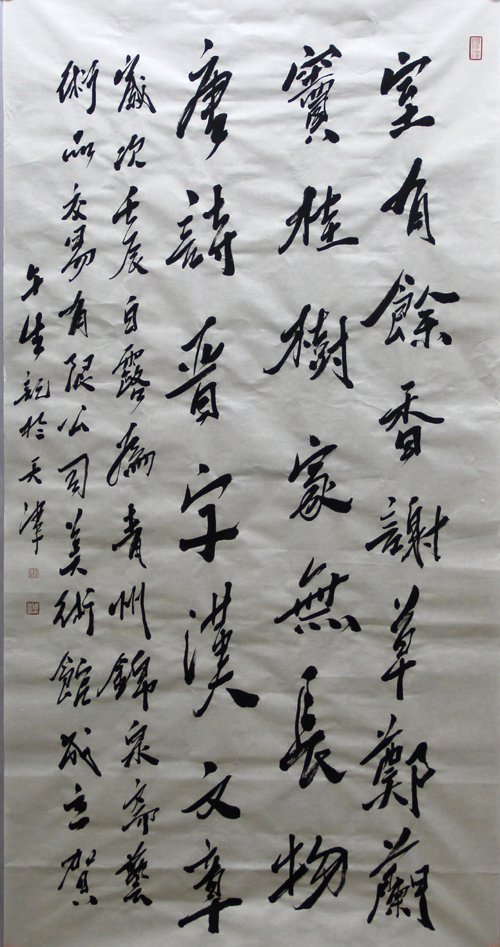 室有餘香謝草鄭蘭
竇桂樹家無長物
唐詩晉字漢文章
歲次壬辰白露為青州錦泉齋藝
術品交易有限公司美術館成立賀
午生記於天津